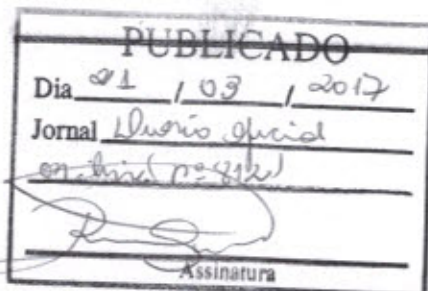 PUBLICADO
Dia 21 / 03 / 2017
Jornal Diário Oficial
on-line (nº 812)
Assinatura